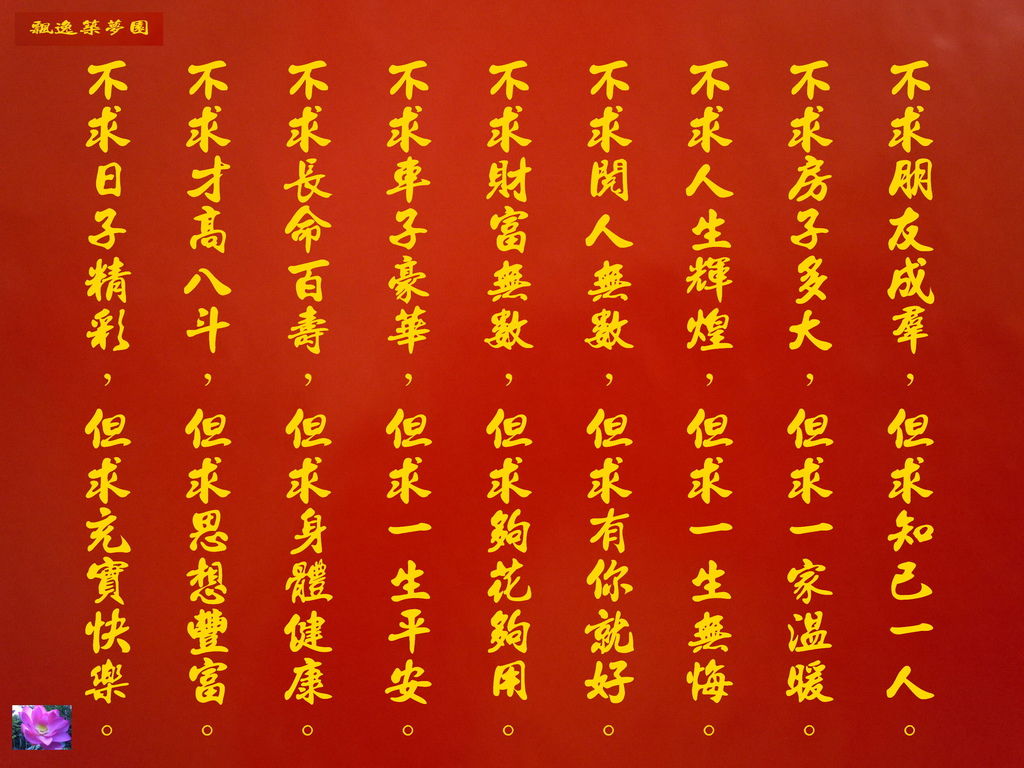 飄逸築夢園
不求朋友成羣,但求知己一人。
不求房子多大,但求一家溫暖。
不求人生輝煌,但求一生無悔。
不求閱人無數,但求有你就好。
不求財富無數,但求夠花夠用。
不求車子豪華,但求一生平安。
不求長命百壽,但求身體健康。
不求才高八斗,但求思想豐富。
不求日子精彩,但求充實快樂。